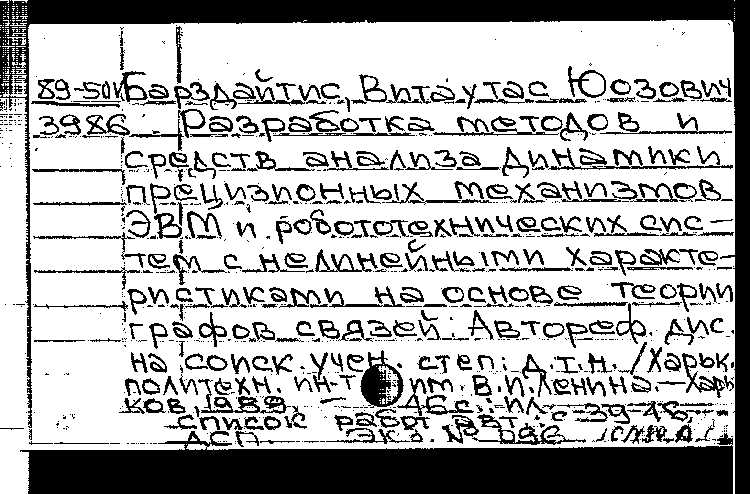 89-50И Барздайтис, Витаутас Юозович
3986. Разработка методов и
средств анализа динамики
прецизионных механизмов
ЭВМ и робототехнических сис-
тем с нелинейными характе-
ристиками на основе теории
графов связей: Автореф. дис.
на соиск. учен. степ. д.т.н. /Харьк.
политехн. ин-т им. В.И. Ленина.—Харь
ков, 1989. – 46 с.: ил.
список работ авт.: с 39-46
ДСП. Экз. № 096